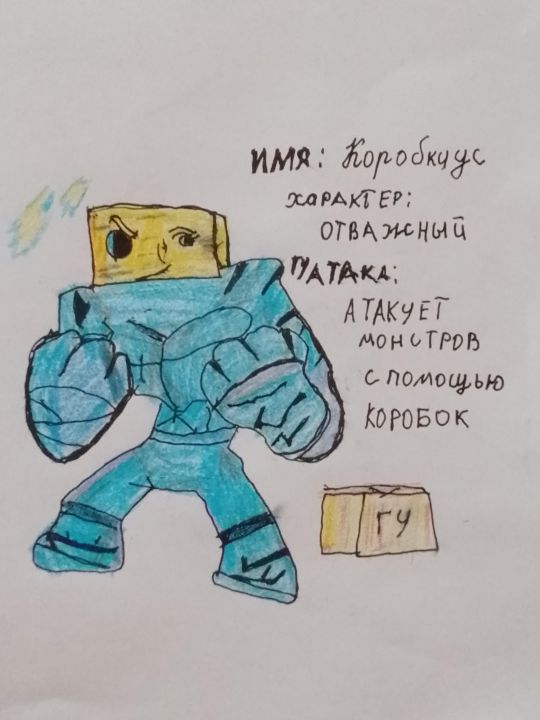 ИМЯ: Коробкиус
ХАРАКТЕР:
ОТВАЖНЫЙ
АТАКА:
АТАКУЕТ
МОНСТРОВ
С ПОМОЩЬЮ
КОРОБОК
ГУ